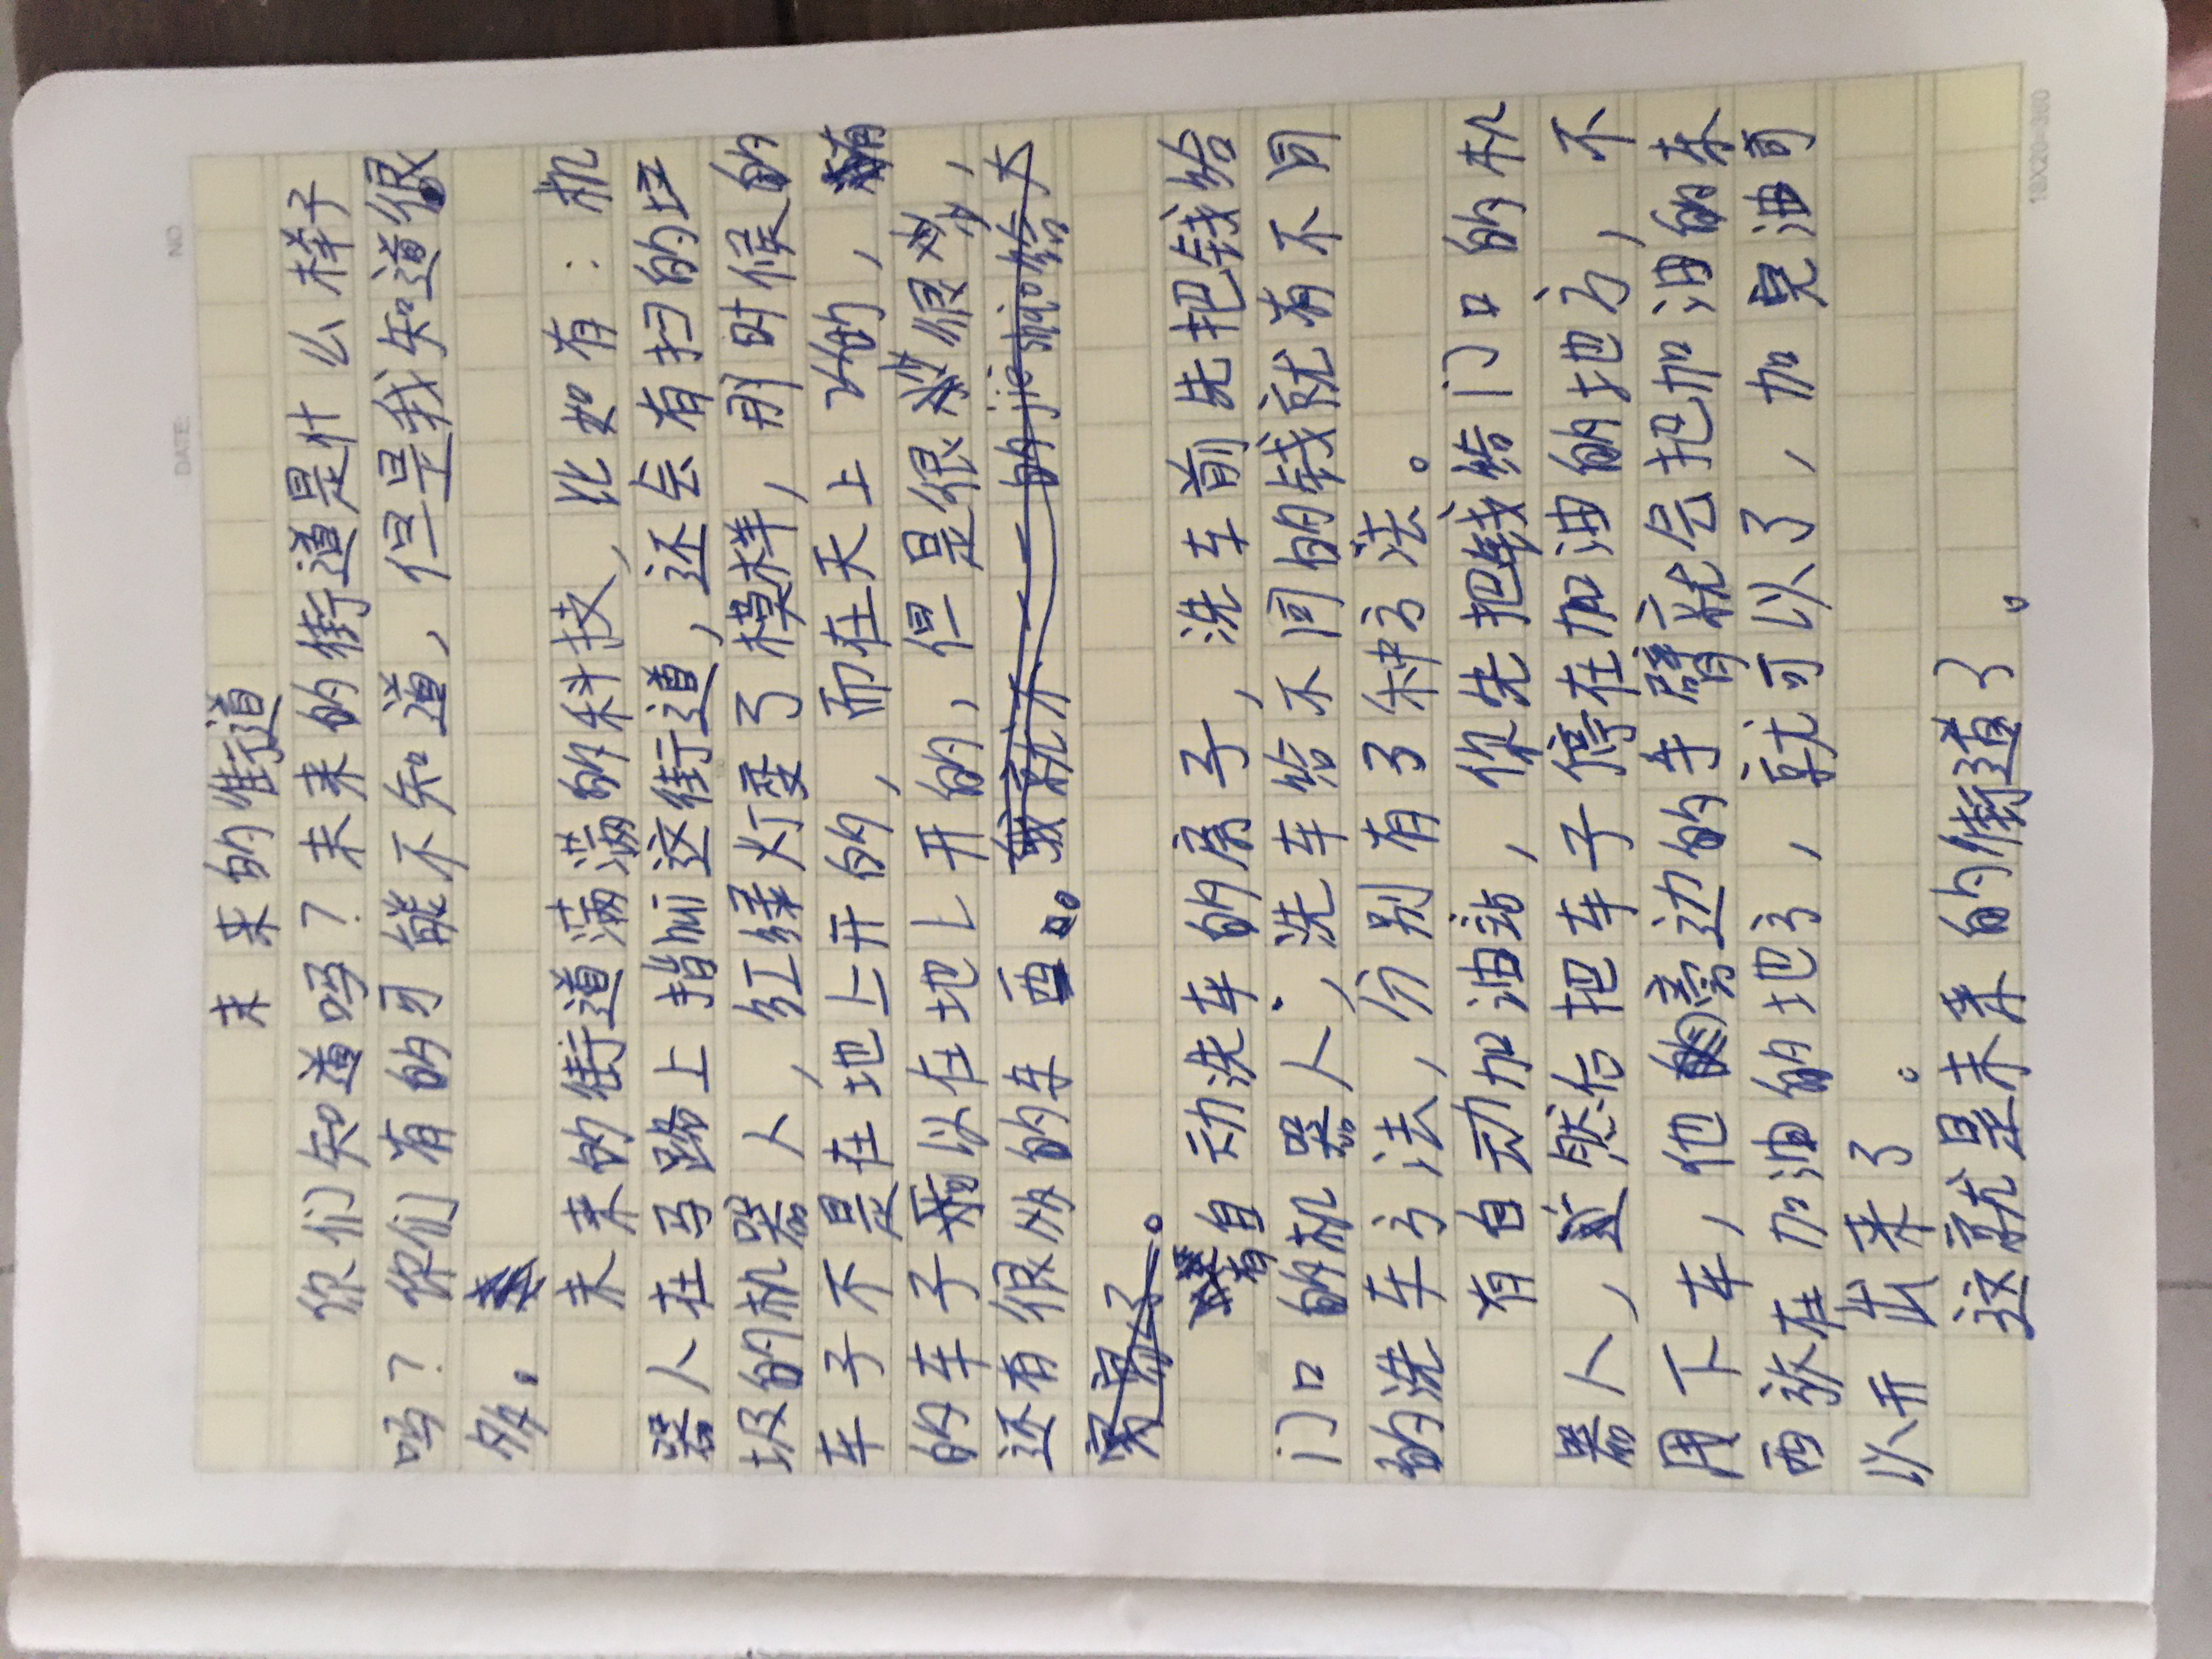 NO.
DATE:
未来的街道
你们知道吗?未来的街道是什么样子
吗?你们有的可能不知道,但是我知道很
多。
未来的街道满满的科技,比如有:机
器人在马路上指挥这街道,还会有扫的垃
圾的机器人,红绿灯变了模样,那时候的
车子不是在地上开的,而在天上的,
的车子可以在地上开的,但是很少很少,
还有很多的东西。我就介的jie shao给大
家家了。
有自动洗车的房子,洗车前先把钱给
门口的机器人,洗车给不同的钱就有不同
的洗车方法,分别有3种方法。
有自动加油站,你先把钱给门口的机
器人,然后把车子停在加油的地方,不
用下车,他旁边的手臂就会把加油的东
西放在加油的地方,就可以了,加完油可
以开出来了。
这就是未来的街道了。
18X20=360